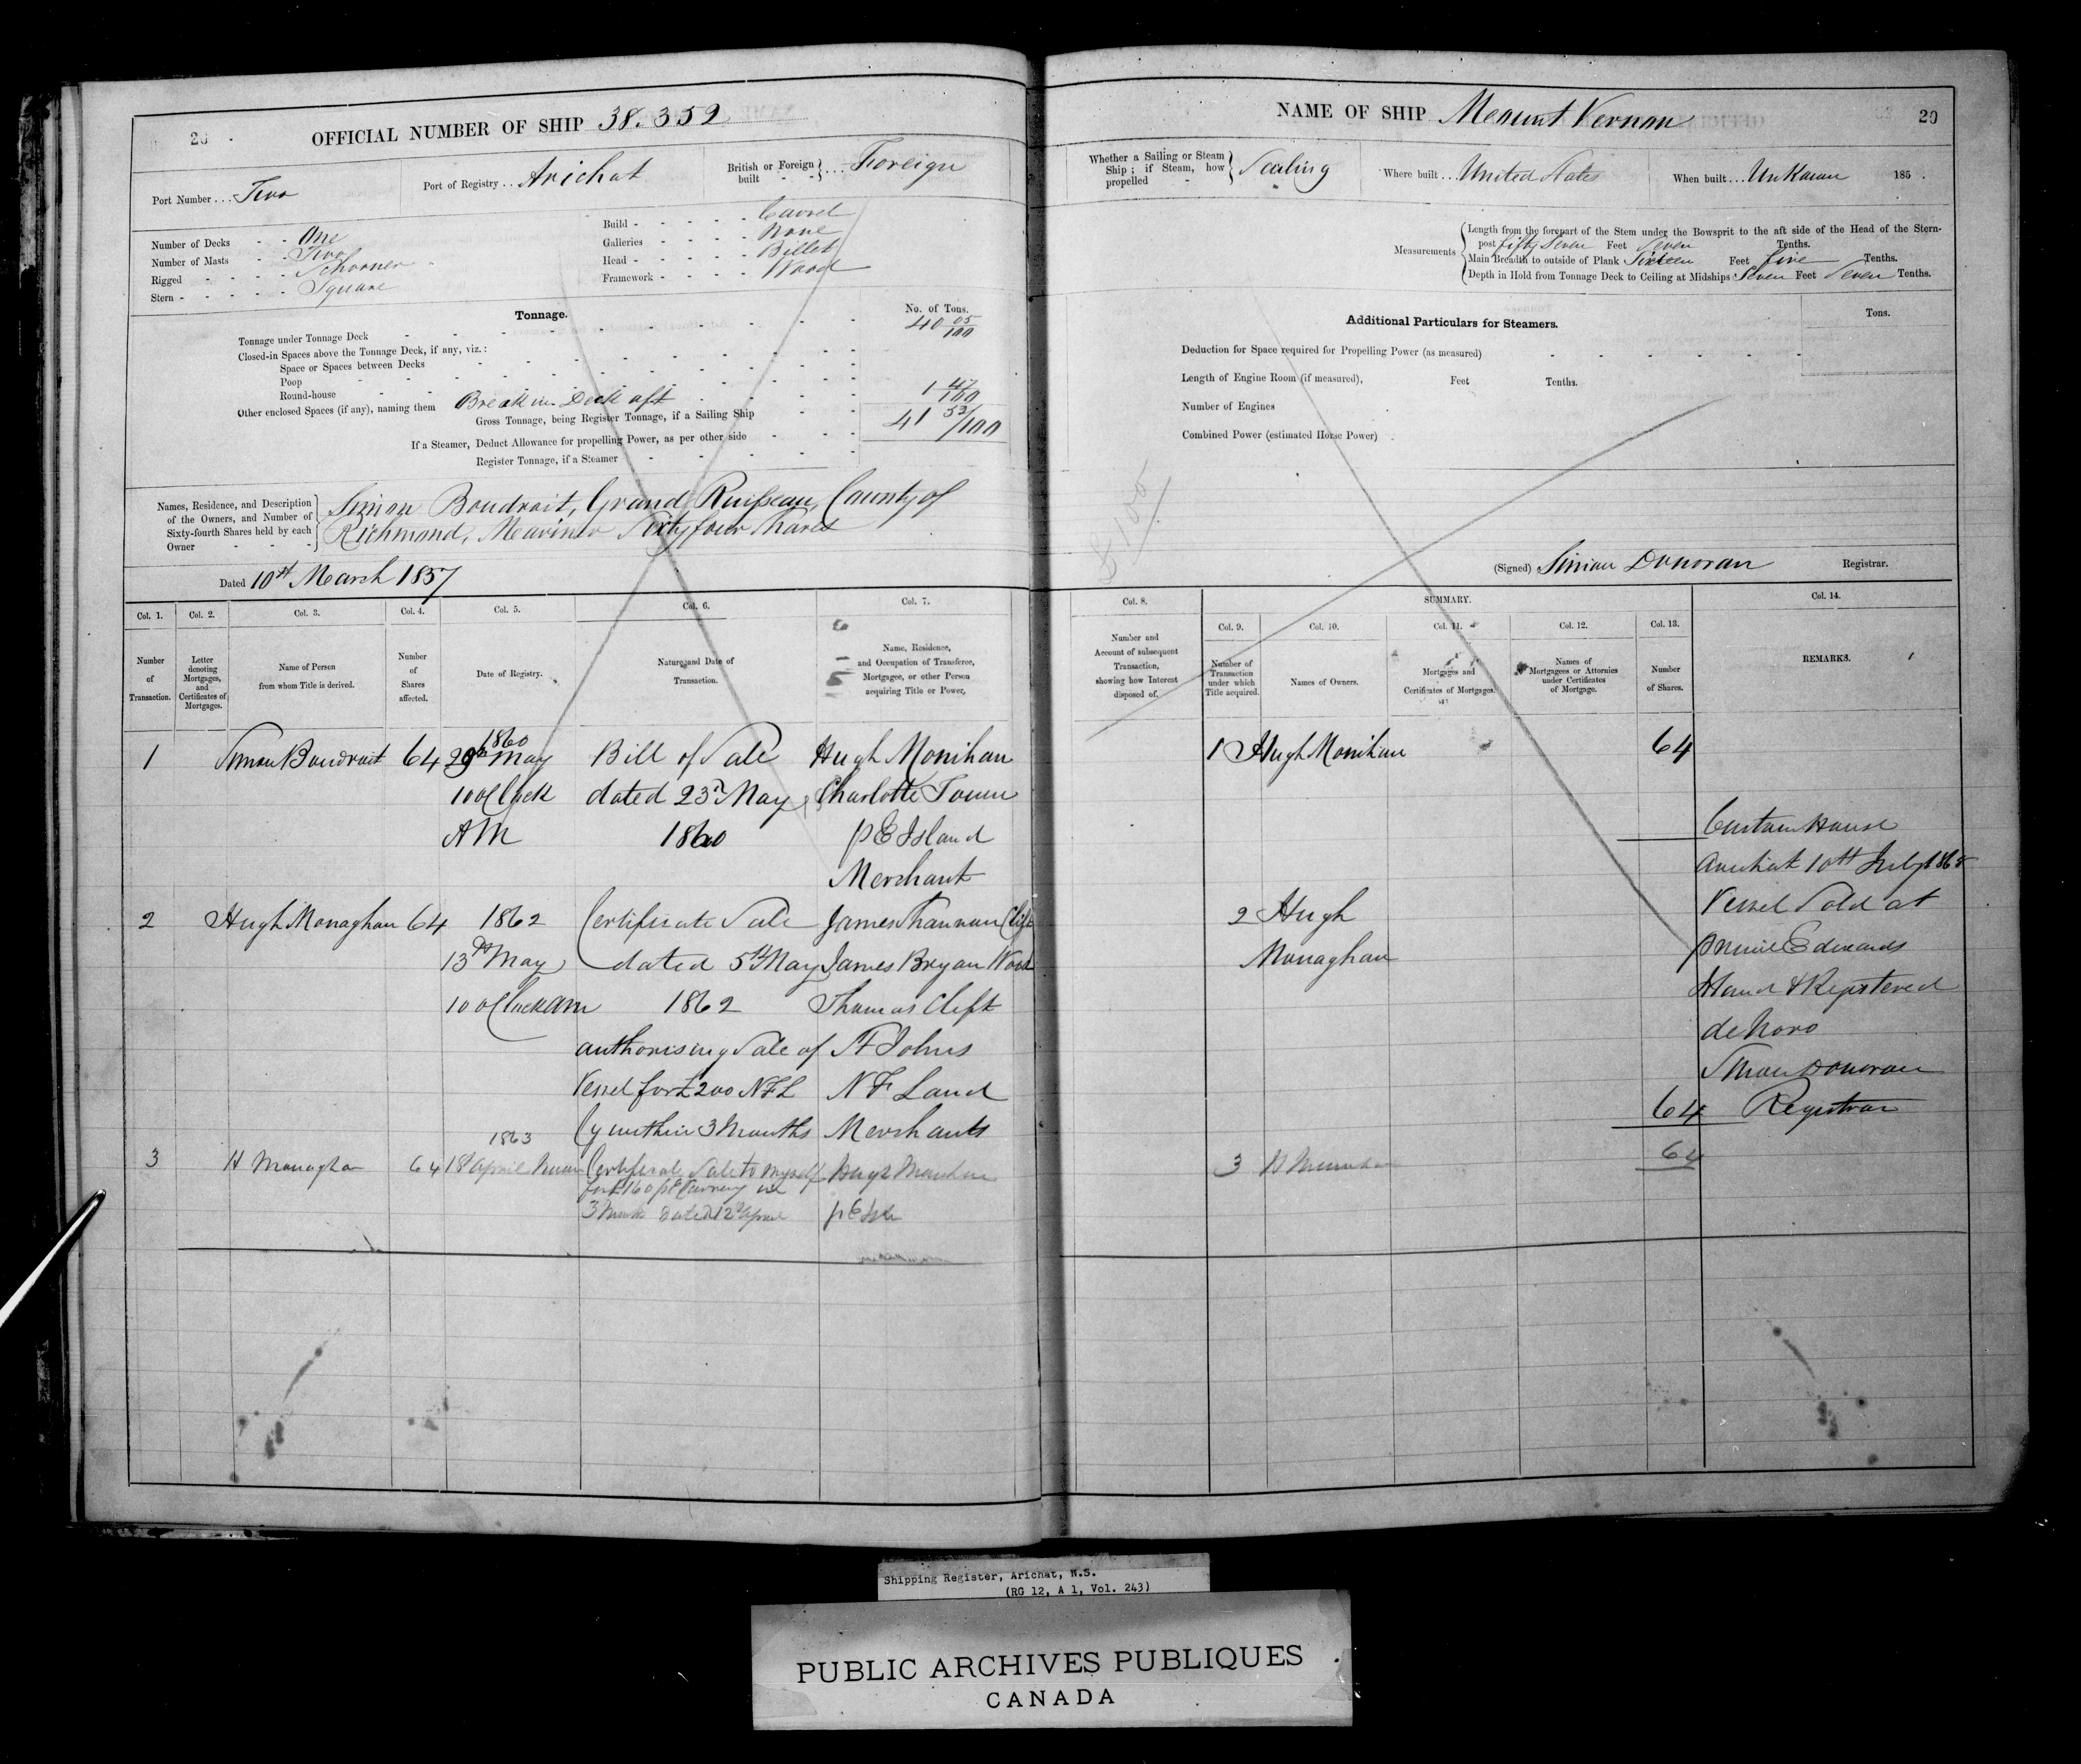 20
OFFICIAL NUMBER OF SHIP 38.352
Port Number ... Two
Port of Registry .. Arichat
British or Foreign built } ... Foreign
Number of Decks - - One
Number of Masts - - Two
Rigged - - - - Schooner
Stern - - - - - Square
Build - - - - - Carvel
Galleries - - - - None
Head - - - - - Billet
Framework - - - - Wood
Tonnage.
No. of Tons.
Tonnage under Tonnage Deck 40 05/100
Closed-in Spaces above the Tonnage Deck, if any, viz.:
Space or Spaces between Decks
Poop
Round-house
Other enclosed Spaces (if any), naming them Break in Deck aft 1 47/100
Gross Tonnage, being Register Tonnage, if a Sailing Ship 41 52/100
If a Steamer, Deduct Allowance for propelling Power, as per other side
Register Tonnage, if a Steamer
Names, Residence, and Description of the Owners, and Number of Sixty-fourth Shares held by each Owner
Simon Boudroit, Grand Ruisseau, County of
Richmond, Mariner Sixty four Shares
Dated 10th March 1857
Col. 1. Col. 2. Col. 3. Col. 4. Col. 5. Col. 6. Col. 7.
Number of Transaction.
Letter denoting Mortgages, and Certificates of Mortgages.
Name of Person from whom Title is derived.
Number of Shares affected.
Date of Registry.
Nature and Date of Transaction.
Name, Residence, and Occupation of Transferee, Mortgagee, or other Person acquiring Title or Power.
1860
1 Simon Boudroit 64 29th May Bill of Sale Hugh Monihan
10 oClock dated 23rd May Charlotte Town
AM 1860 P E Island
Merchant
2 Hugh Monaghan 64 1862 Certificate Sale James Clift
13th May dated 5th May James Bryan Wood
10 oClock am 1862 Thomas Clift
authorising Sale of St Johns
Vessel for £200 NFL N F Land
Cy within 3 Months Merchants
1863
3 H Monaghan 64 18 April Noon Certificate Sale to myself Hugh
for £160 Currency in
3 dated 12th April P E
NAME OF SHIP Mount Vernon
20
Whether a Sailing or Steam Ship; if Steam, how propelled } Sailing
Where built ... United States
When built ... Unknown 185 .
Measurements
Length from the forepart of the Stem under the Bowsprit to the aft side of the Head of the Stern-
post fifty Seven Feet Seven Tenths.
Main Breadth to outside of Plank Sixteen Feet five Tenths.
Depth in Hold from Tonnage Deck to Ceiling at Midships Seven Feet Seven Tenths.
Additional Particulars for Steamers.
Tons.
Deduction for Space required for Propelling Power (as measured)
Length of Engine Room (if measured), Feet Tenths.
Number of Engines
Combined Power (estimated Horse Power)
£100
(Signed) Simon Donovan Registrar.
Col. 8. SUMMARY. Col. 14.
Col. 9. Col. 10. Col. 11. Col. 12. Col. 13.
Number and Account of subsequent Transaction, showing how Interest disposed of.
Number of Transaction under which Title acquired.
Names of Owners.
Mortgages and Certificates of Mortgages.
Names of Mortgagees or Attornies under Certificates of Mortgage.
Number of Shares.
REMARKS.
1 Hugh Monihan 64
2 Hugh
Monaghan
64
3 H 64
Custom House
Arichat 10th July
Vessel Sold at
Prince Edwards
Island & Registered
de Novo
Simon Donovan
Registrar
Shipping Register, Arichat, N.S.
(RG 12, A 1, Vol. 243)
PUBLIC ARCHIVES PUBLIQUES
CANADA